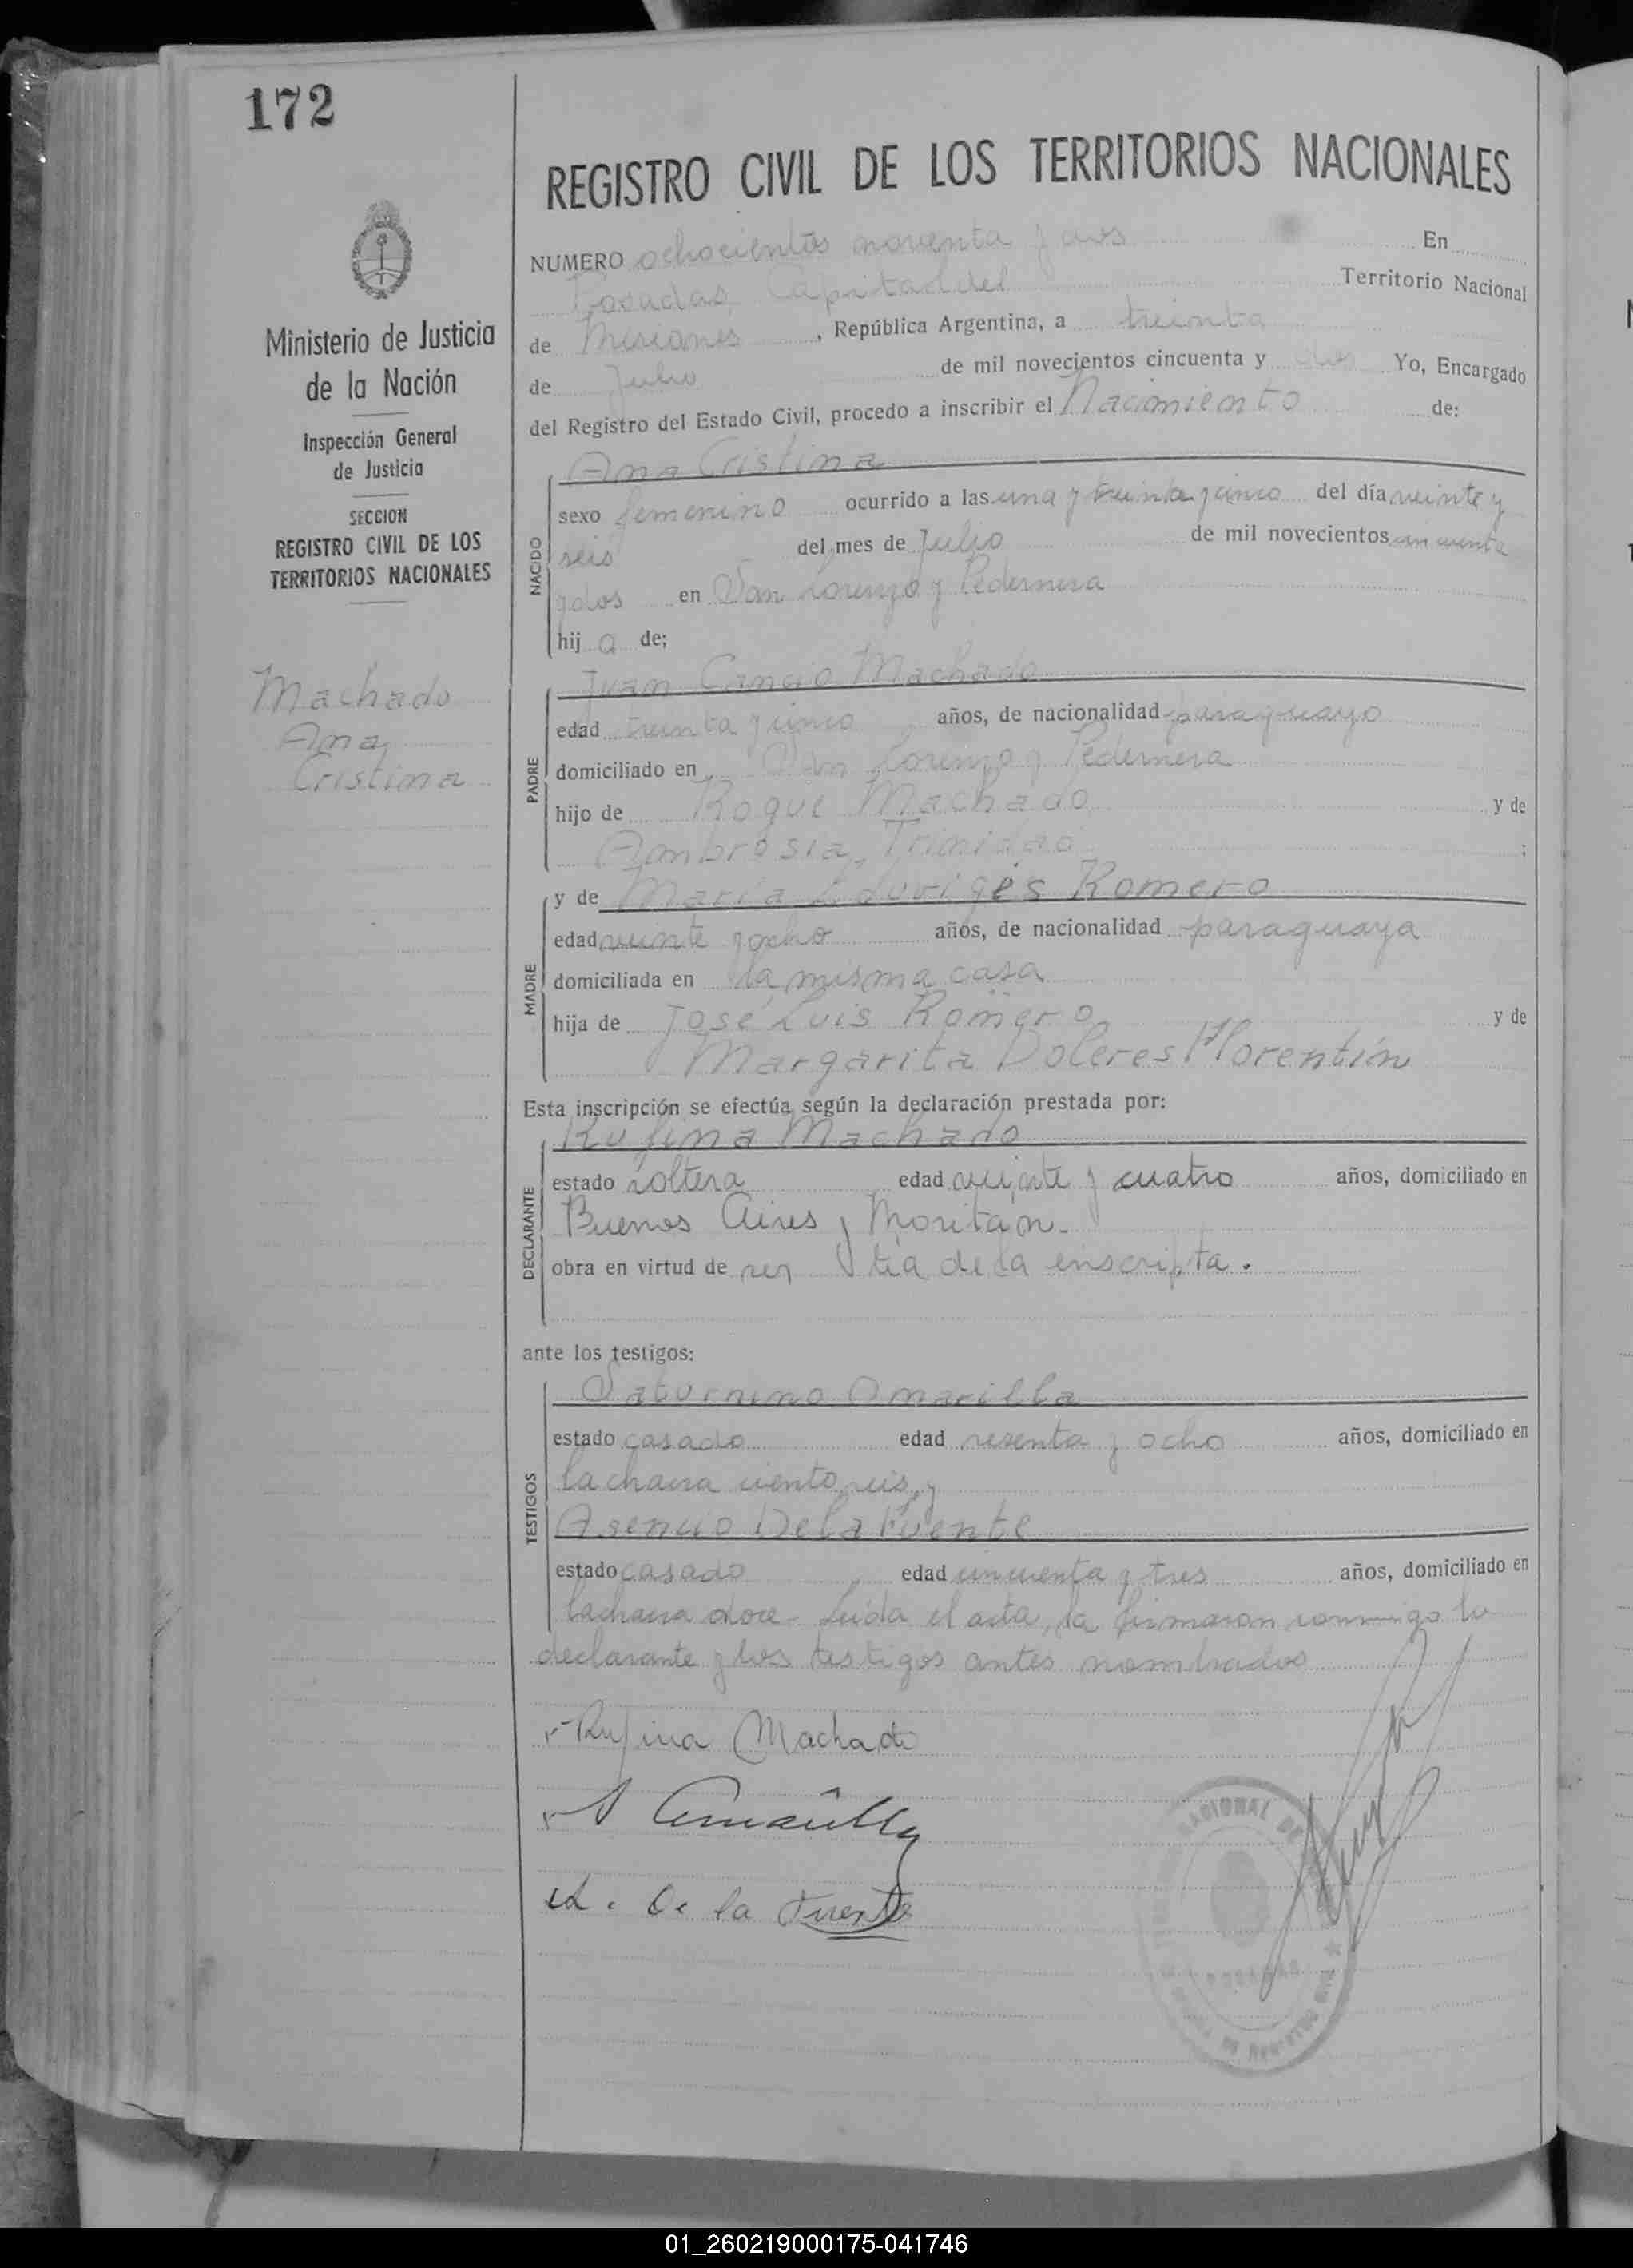 172
Ministerio de Justicia
de la Nación
Inspección General
de Justicia
SECCION
REGISTRO CIVIL DE LOS
TERRITORIOS NACIONALES
Machado
Ana
Cristina
REGISTRO CIVIL DE LOS TERRITORIOS NACIONALES
NUMERO ochocientos noventa y dos En
Posadas, Capital del Territorio Nacional
de Misiones, República Argentina, a treinta
de Julio de mil novecientos cincuenta y dos Yo, Encargado
del Registro del Estado Civil, procedo a inscribir el Nacimiento de:
Ana Cristina
NACIDO
sexo femenino ocurrido a las una y treinta y cinco del día veinte y
seis del mes de Julio de mil novecientos cincuenta
y dos en San Lorenzo y Pedernera
hij a de;
Juan Cancio Machado
PADRE
edad treinta y cinco años, de nacionalidad paraguayo
domiciliado en San Lorenzo y Pedernera
hijo de Roque Machado y de
Ambrosia Trinidad ;
y de María Eduviges Romero
MADRE
edad veinte y ocho años, de nacionalidad paraguaya
domiciliada en la misma casa
hija de José Luis Romero y de
Margarita Dolores Florentín
Esta inscripción se efectúa según la declaración prestada por:
Rufina Machado
DECLARANTE
estado soltera edad veinte y cuatro años, domiciliado en
Buenos Aires y Moritán.
obra en virtud de ser tía de la inscripta.
ante los testigos:
Saturnino Amarilla
TESTIGOS
estado casado edad sesenta y ocho años, domiciliado en
la chacra ciento seis, y
Asencio De la Fuente
estado casado edad cincuenta y tres años, domiciliado en
la chacra doce. Leída el acta, la firmaron conmigo la
declarante y los testigos antes nombrados
Rufina Machado
A Amarilla
A. De la Fuente
NACIONAL DE
POSADAS
01_260219000175-041746